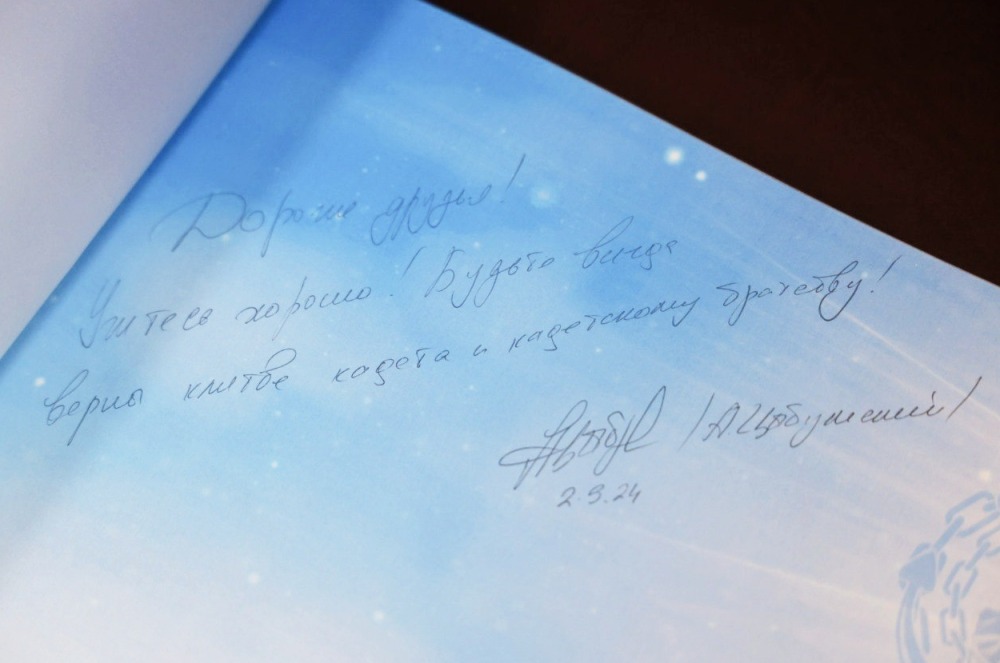 Дорогие друзья!
Учитесь хорошо! Будьте всегда
верны клятве кадета и кадетскому братству!
/А.Цыбульский/
2.9.24